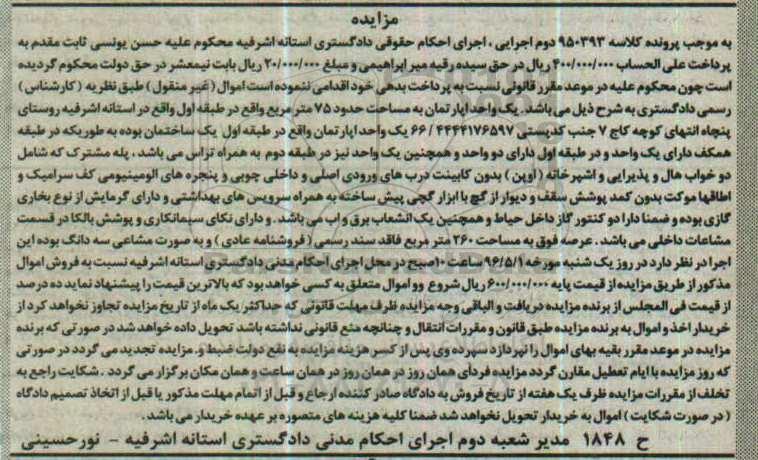 مزایده
به موجب پرونده کلاسه ۹۵۰۳۹۳ دوم اجرایی ، اجرای احکام حقوقی دادگستری استانه اشرفیه محکوم علیه حسن یونسی ثابت مقدم به
پرداخت علی الحساب ۴۰۰/۰۰۰/۰۰۰ ریال در حق سیده رقیه میر ابراهیمی و مبلغ ۲۰/۰۰۰/۰۰۰ ریال بابت نیمعشر در حق دولت محکوم گردیده
است چون محکوم علیه در موعد مقرر قانونی نسبت به پرداخت بدهی خود اقدامی ننموده است اموال ( غیر منقول ) طبق نظریه ( کارشناس )
رسمی دادگستری به شرح ذیل می باشد . یک واحد اپارتمان به مساحت حدود ۷۵ متر مربع واقع در طبقه اول واقع در استانه اشرفیه روستای
پنچاه انتهای کوچه کاج ۷ جنب کدپستی ۴۴۴۴۱۷۶۵۹۷ / ۶۶ یک واحد اپارتمان واقع در طبقه اول یک ساختمان بوده به طوریکه در طبقه
همکف دارای یک واحد و در طبقه اول دارای دو واحد و همچنین یک واحد نیز در طبقه دوم به همراه تراس می باشد ، پله مشترک که شامل
دو خواب هال و پذیرایی و اشپرخانه ( اوپن ) بدون کابینت درب های ورودی اصلی و داخلی چوبی و پنجره های الومینیومی کف سرامیک و
اطاقها موکت بدون کمد پوشش سقف و دیوار از گچ با ابزار گچی پیش ساخته به همراه سرویس های بهداشتی و دارای گرمایش از نوع بخاری
گازی بوده و ضمنا دارا دو کنتور گاز داخل حیاط و همچنین یک انشعاب برق و اب می باشد . و دارای نکای سیمانکاری و پوشش بالکا در قسمت
مشاعات داخلی می باشد . عرصه فوق به مساحت ۲۶۰ متر مربع فاقد سند رسمی ( فروشنامه عادی ) و به صورت مشاعی سه دانگ بوده این
اجرا در نظر دارد در روز یک شنبه مورخه ۹۶/۵/۱ ساعت ۱۰ صبح در محل اجرای احکام مدنی دادگستری استانه اشرفیه نسبت به فروش اموال
مذکور از طریق مزایده از قیمت پایه ۶۰۰/۰۰۰/۰۰۰ ریال شروع و واموال متعلق به کسی خواهد بود که بالاترین قیمت را پیشنهاد نماید ده درصد
از قیمت فی المجلس از برنده مزایده دریافت و الباقی وجه مزایده ظرف مهلت قانونی که حداکثر یک ماه از تاریخ مزایده تجاوز نخواهد کرد از
خریدار اخذ و اموال به برنده مزایده طبق قانون و مقررات انتقال و چنانچه منع قانونی نداشته باشد تحویل داده خواهد شد در صورتی که برنده
مزایده در موعد مقرر بقیه بهای اموال را نپردازد سپرده وی پس از کسر هزینه مزایده به نفع دولت ضبط و . مزایده تجدید می گردد در صورتی
که روز مزایده با ایام تعطیل مقارن گردد مزایده فردای همان روز در همان روز در همان ساعت و همان مکان برگزار می گردد . شکایت راجع به
تخلف از مقررات مزایده ظرف یک هفته از تاریخ فروش به دادگاه صادر کننده ارجاع و قبل از اتمام مهلت مذکور یا قبل از اتخاذ تصمیم دادگاه
( در صورت شکایت ) اموال به خریدار تحویل نخواهد شد ضمنا کلیه هزینه های متصوره بر عهده خریدار می باشد .
ح ۱۸۴۸ مدیر شعبه دوم اجرای احکام مدنی دادگستری استانه اشرفیه - نورحسینی